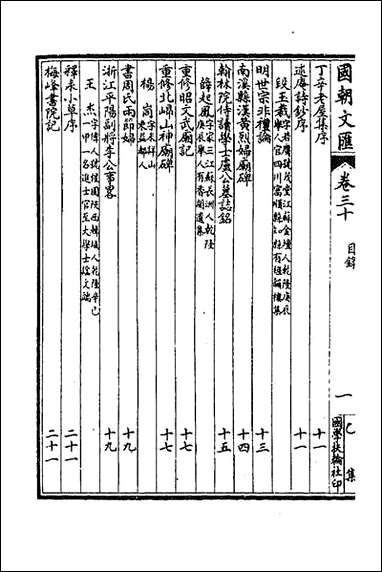 國朝文匯 卷三十 目錄 一 乙集
國學扶輪社印
丁辛老屋集序 十一
述庵詩鈔序 十一
段玉裁 字若膺號茂堂江蘇金壇人乾隆庚辰舉人官四川富順縣知縣有經韻樓集
明世宗非禮論 十三
南溪縣漢黃烈婦廟碑 十四
翰林院侍讀學士盧公墓誌銘 十五
薛起鳳 字家三江蘇長洲人乾隆庚辰舉人有香聞遺集
重修昭文武廟記 十七
重修北崦山神廟碑 十七
楊 字 山東益都人
書周氏兩節婦 十九
浙江平陽副將李公事畧 十九
王杰 字偉人號惺園陝西韓城人乾隆辛巳一甲一名進士官至大學士諡文端
釋表小草序 二十一
梅峰書院記 二十一